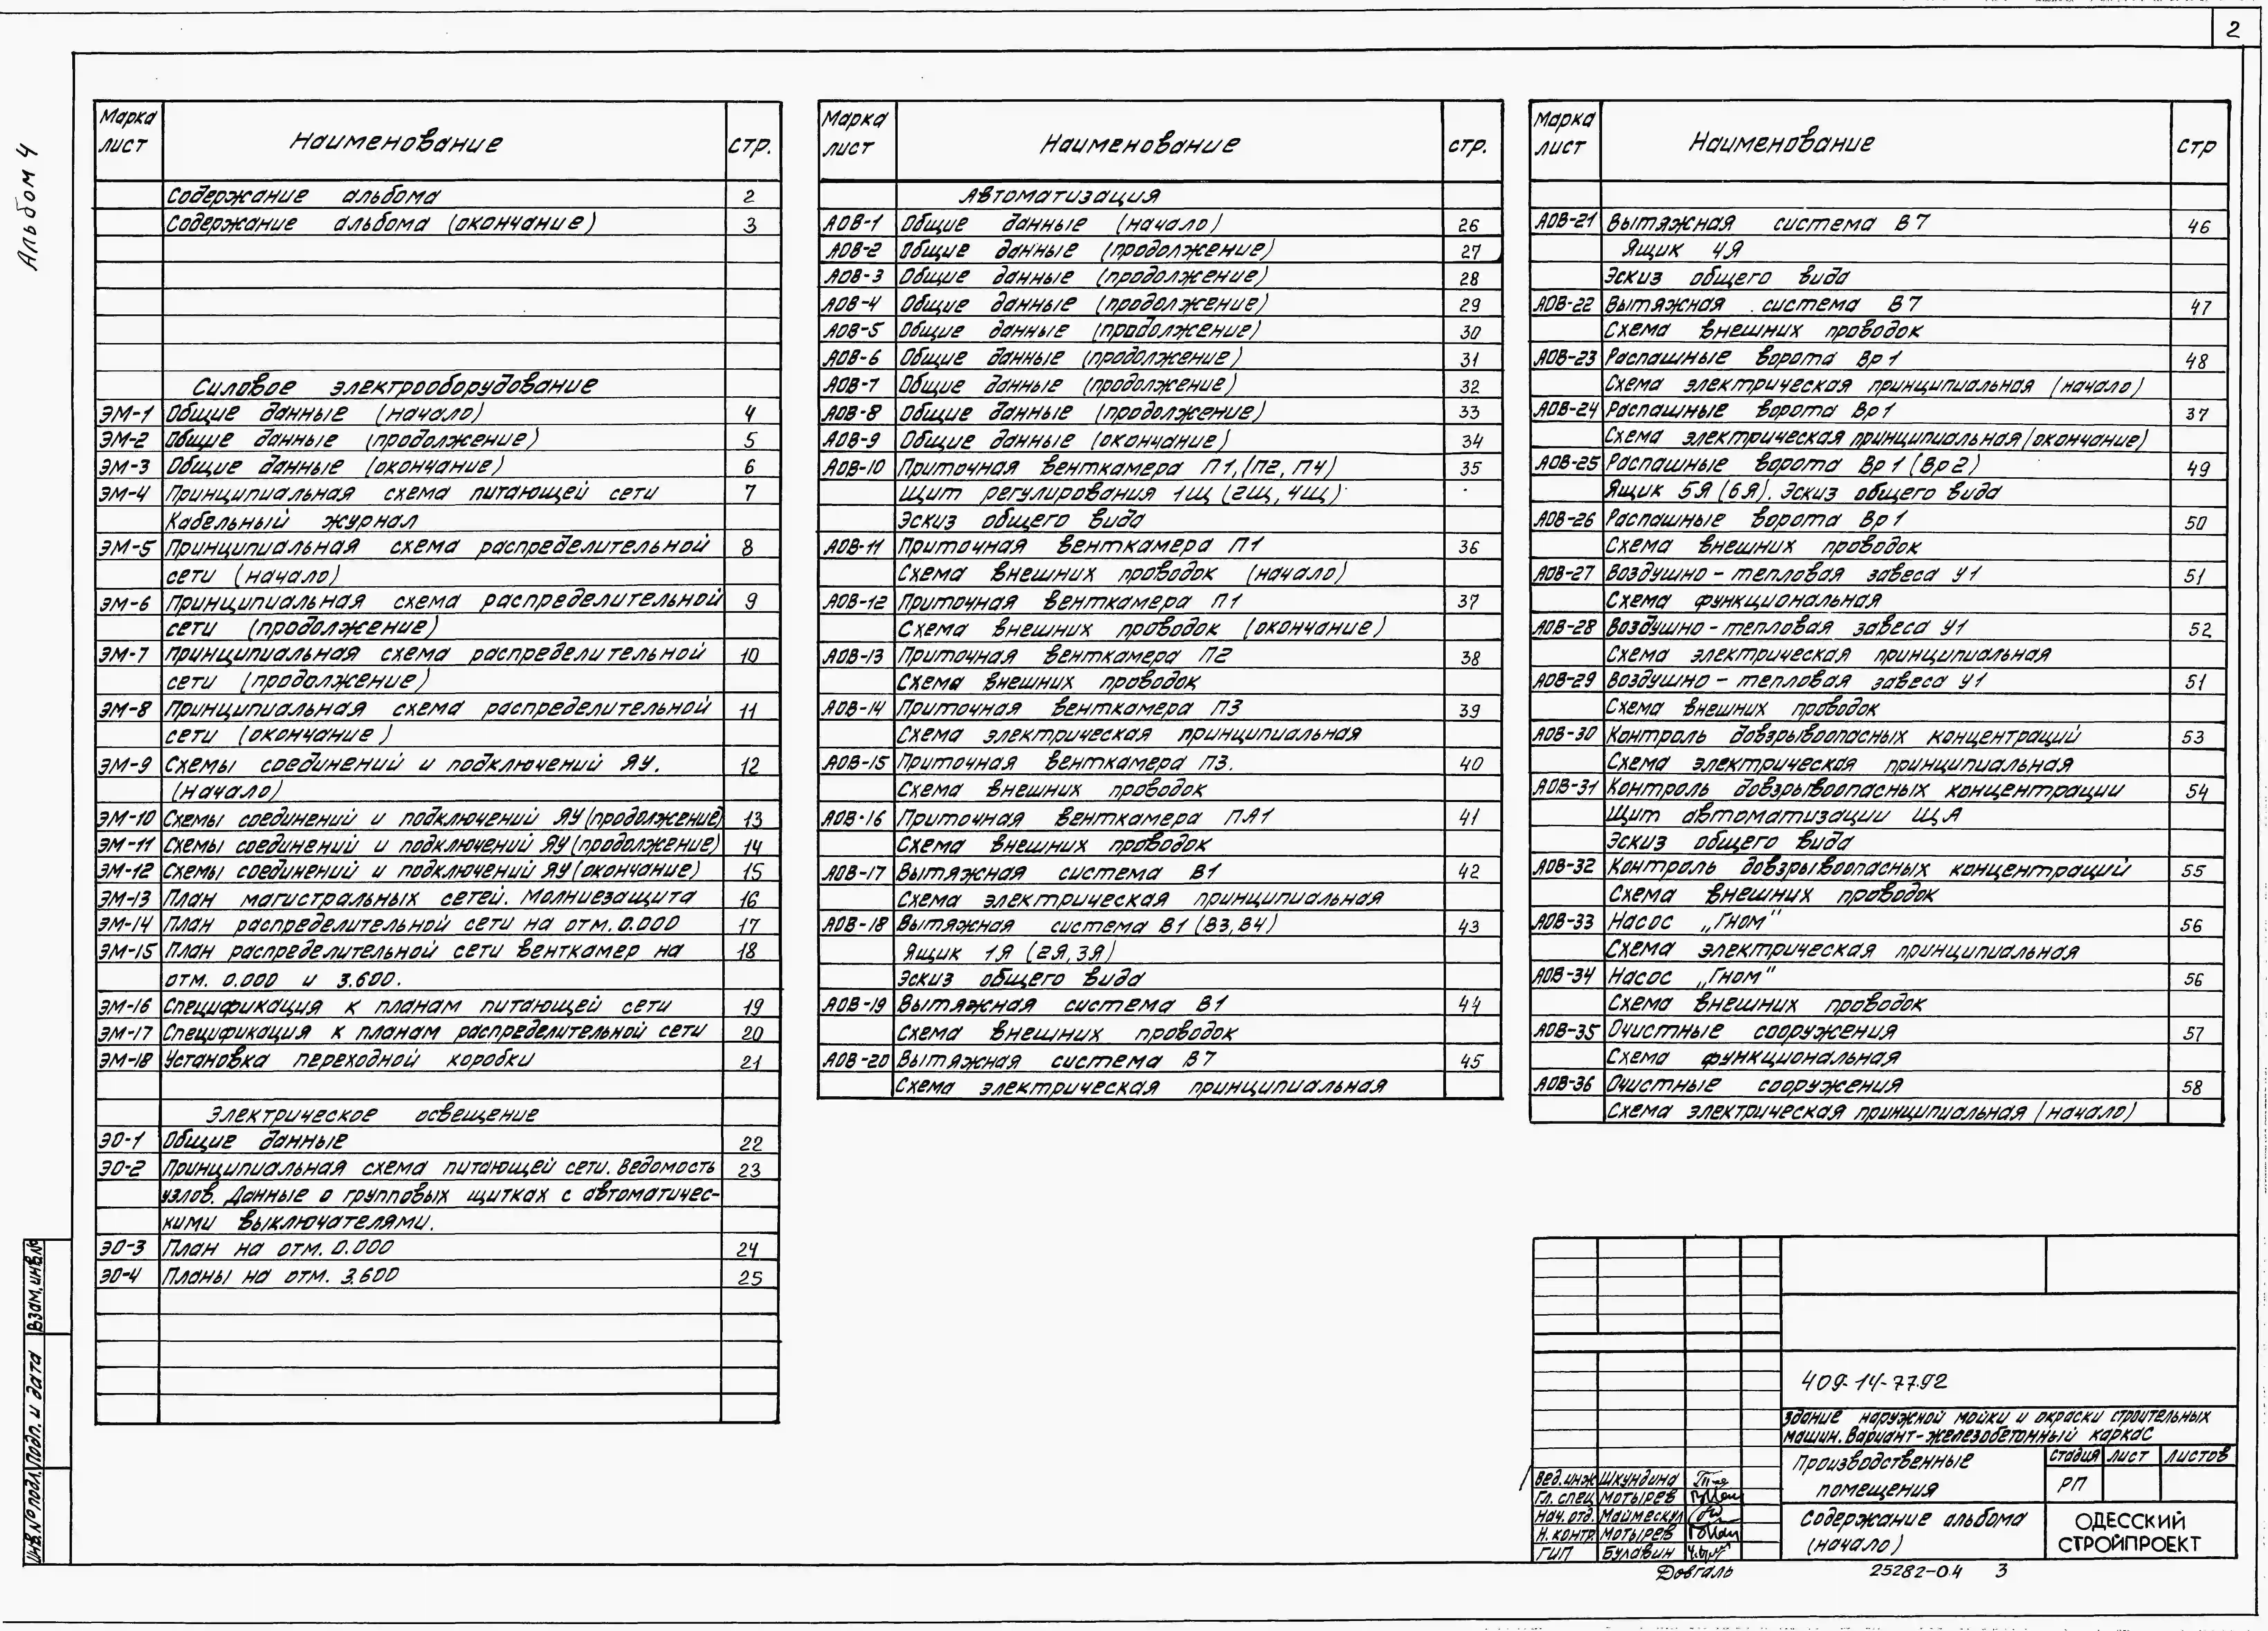 2
Альбом 4
Марка лист Наименование стр.
Содержание альбома 2
Содержание альбома (окончание) 3
Силовое электрооборудование
ЭМ-1 Общие данные (начало) 4
ЭМ-2 Общие данные (продолжение) 5
ЭМ-3 Общие данные (окончание) 6
ЭМ-4 Принципиальная схема питающей сети 7
Кабельный журнал
ЭМ-5 Принципиальная схема распределительной 8
сети (начало)
ЭМ-6 Принципиальная схема распределительной 9
сети (продолжение)
ЭМ-7 Принципиальная схема распределительной 10
сети (продолжение)
ЭМ-8 Принципиальная схема распределительной 11
сети (окончание)
ЭМ-9 Схемы соединений и подключений ЯУ. 12
(начало)
ЭМ-10 Схемы соединений и подключений ЯУ (продолжение) 13
ЭМ-11 Схемы соединений и подключений ЯУ (продолжение) 14
ЭМ-12 Схемы соединений и подключений ЯУ (окончание) 15
ЭМ-13 План магистральных сетей. Молниезащита 16
ЭМ-14 План распределительной сети на отм. 0.000 17
ЭМ-15 План распределительной сети венткамер на 18
отм. 0.000 и 3.600.
ЭМ-16 Спецификация к планам питающей сети 19
ЭМ-17 Спецификация к планам распределительной сети 20
ЭМ-18 Установка переходной коробки 21
Электрическое освещение
ЭО-1 Общие данные 22
ЭО-2 Принципиальная схема питающей сети. Ведомость 23
узлов. Данные о групповых щитках с автоматичес-
кими выключателями.
ЭО-3 План на отм. 0.000 24
ЭО-4 Планы на отм. 3.600 25
Марка лист Наименование стр.
Автоматизация
АОВ-1 Общие данные (начало) 26
АОВ-2 Общие данные (продолжение) 27
АОВ-3 Общие данные (продолжение) 28
АОВ-4 Общие данные (продолжение) 29
АОВ-5 Общие данные (продолжение) 30
АОВ-6 Общие данные (продолжение) 31
АОВ-7 Общие данные (продолжение) 32
АОВ-8 Общие данные (продолжение) 33
АОВ-9 Общие данные (окончание) 34
АОВ-10 Приточная венткамера П1, (П2, П4) 35
Щит регулирования 1Щ (2Щ, 4Щ)
Эскиз общего вида
АОВ-11 Приточная венткамера П1 36
Схема внешних проводок (начало)
АОВ-12 Приточная венткамера П1 37
Схема внешних проводок (окончание)
АОВ-13 Приточная венткамера П2 38
Схема внешних проводок
АОВ-14 Приточная венткамера П3 39
Схема электрическая принципиальная
АОВ-15 Приточная венткамера П3. 40
Схема внешних проводок
АОВ-16 Приточная венткамера ПА1 41
Схема внешних проводок
АОВ-17 Вытяжная система В1 42
Схема электрическая принципиальная
АОВ-18 Вытяжная система В1 (В3, В4) 43
Ящик 1Я (2Я, 3Я)
Эскиз общего вида
АОВ-19 Вытяжная система В1 44
Схема внешних проводок
АОВ-20 Вытяжная система В7 45
Схема электрическая принципиальная
Марка лист Наименование стр
АОВ-21 Вытяжная система В7 46
Ящик 4Я
Эскиз общего вида
АОВ-22 Вытяжная система В7 47
Схема внешних проводок
АОВ-23 Распашные ворота Вр1 48
Схема электрическая принципиальная (начало)
АОВ-24 Распашные ворота Вр1 37
Схема электрическая принципиальная (окончание)
АОВ-25 Распашные ворота Вр1 (Вр2) 49
Ящик 5Я (6Я). Эскиз общего вида
АОВ-26 Распашные ворота Вр1 50
Схема внешних проводок
АОВ-27 Воздушно-тепловая завеса У1 51
Схема функциональная
АОВ-28 Воздушно-тепловая завеса У1 52
Схема электрическая принципиальная
АОВ-29 Воздушно-тепловая завеса У1 51
Схема внешних проводок
АОВ-30 Контроль довзрывоопасных концентраций 53
Схема электрическая принципиальная
АОВ-31 Контроль довзрывоопасных концентрации 54
Щит автоматизации ЩА
Эскиз общего вида
АОВ-32 Контроль довзрывоопасных концентраций 55
Схема внешних проводок
АОВ-33 Насос „Гном" 56
Схема электрическая принципиальная
АОВ-34 Насос „Гном" 56
Схема внешних проводок
АОВ-35 Очистные сооружения 57
Схема функциональная
АОВ-36 Очистные сооружения 58
Схема электрическая принципиальная (начало)
409-14-77.92
Здание наружной мойки и окраски строительных
машин. Вариант-железобетонный каркас
Производственные помещения
стадия лист листов
РП
Вед.инж Шкундина
Гл. спец Мотырев
Нач. отд. Маймескул
Н. контр. Мотырев
ГИП Булавин
Содержание альбома
(начало)
ОДЕССКИЙ
СТРОЙПРОЕКТ
Довгаль 25282-04 3
Взам. инв.№
Подп. и дата
Инв.№ подл.